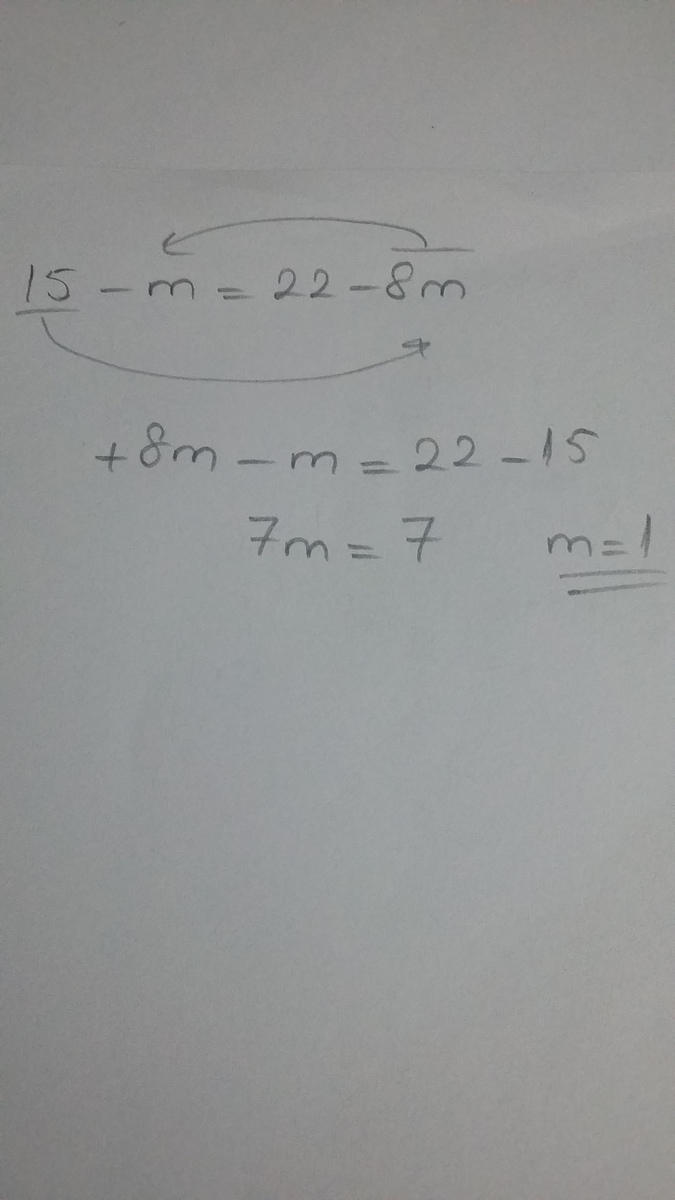 15 - m = 22 - 8m
+ 8m - m = 22 - 15
7m = 7 m = 1